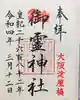 奉拝
大阪淀屋橋
御霊神社
皇紀二千六百八十二年
令和四年三月十二日